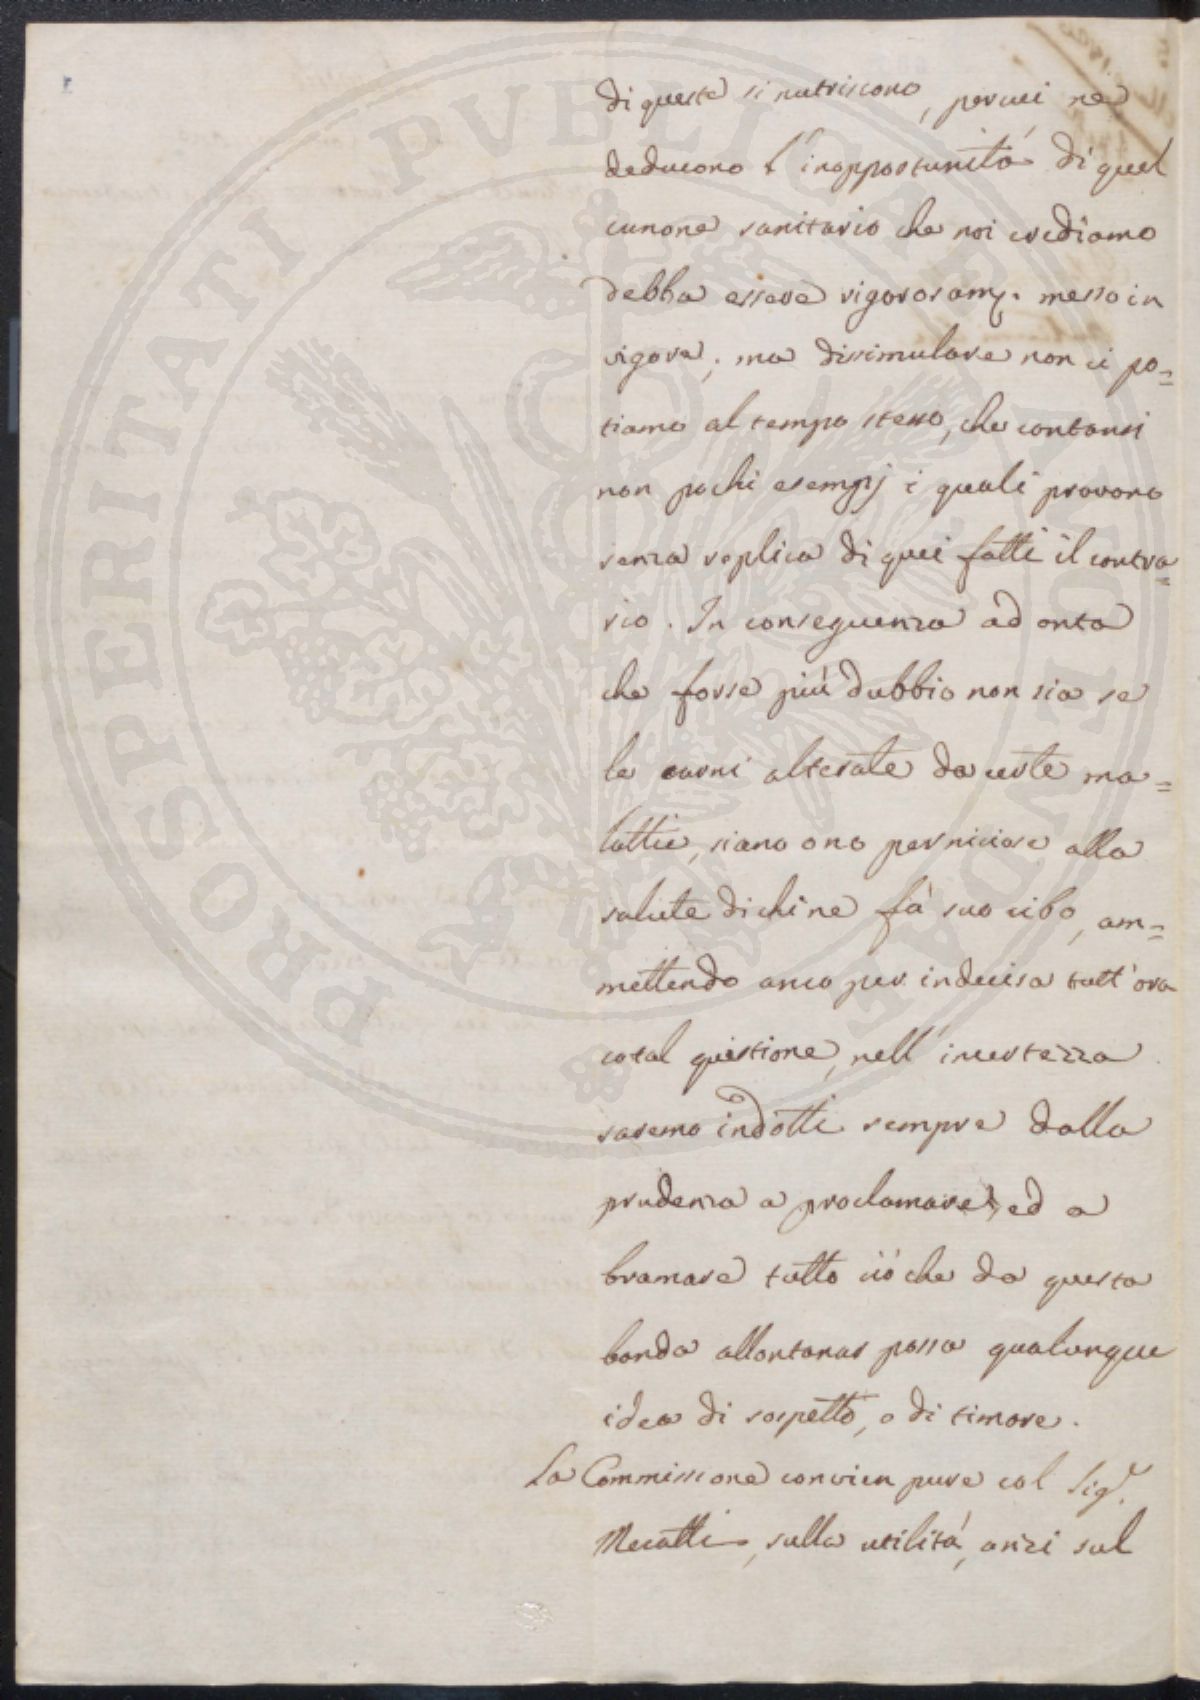 di queste si nutriscono, percui ne
deducono l'inopportunità di quel
canone sanitario che noi crediamo
debba essere rigorosam.e messo in
vigore; ma dissimulare non ci po=
tiamo al tempo stesso, che contansi
non pochi esempj i quali provono
senza replica di quei fatti il contra=
rio. In conseguenza ad onta
che forse più dubbio non sia se
le carni alterate da certe ma=
lattie, siano o no perniciose alla
salute di chi ne fà suo cibo, am=
mettendo anco per indecisa tutt'ora
cotal quistione, nell'incertezza
saremo indotti sempre dalla
prudenza a proclamare, ed a
bramare tutto ciò che da questa
banda allontanar possa qualunque
idea di sospetto, o di timore.
La Commissione convien pure col Sig.r
Mecatti, sulla utilità, anzi sul
PROSPERITATI PUBLICAE